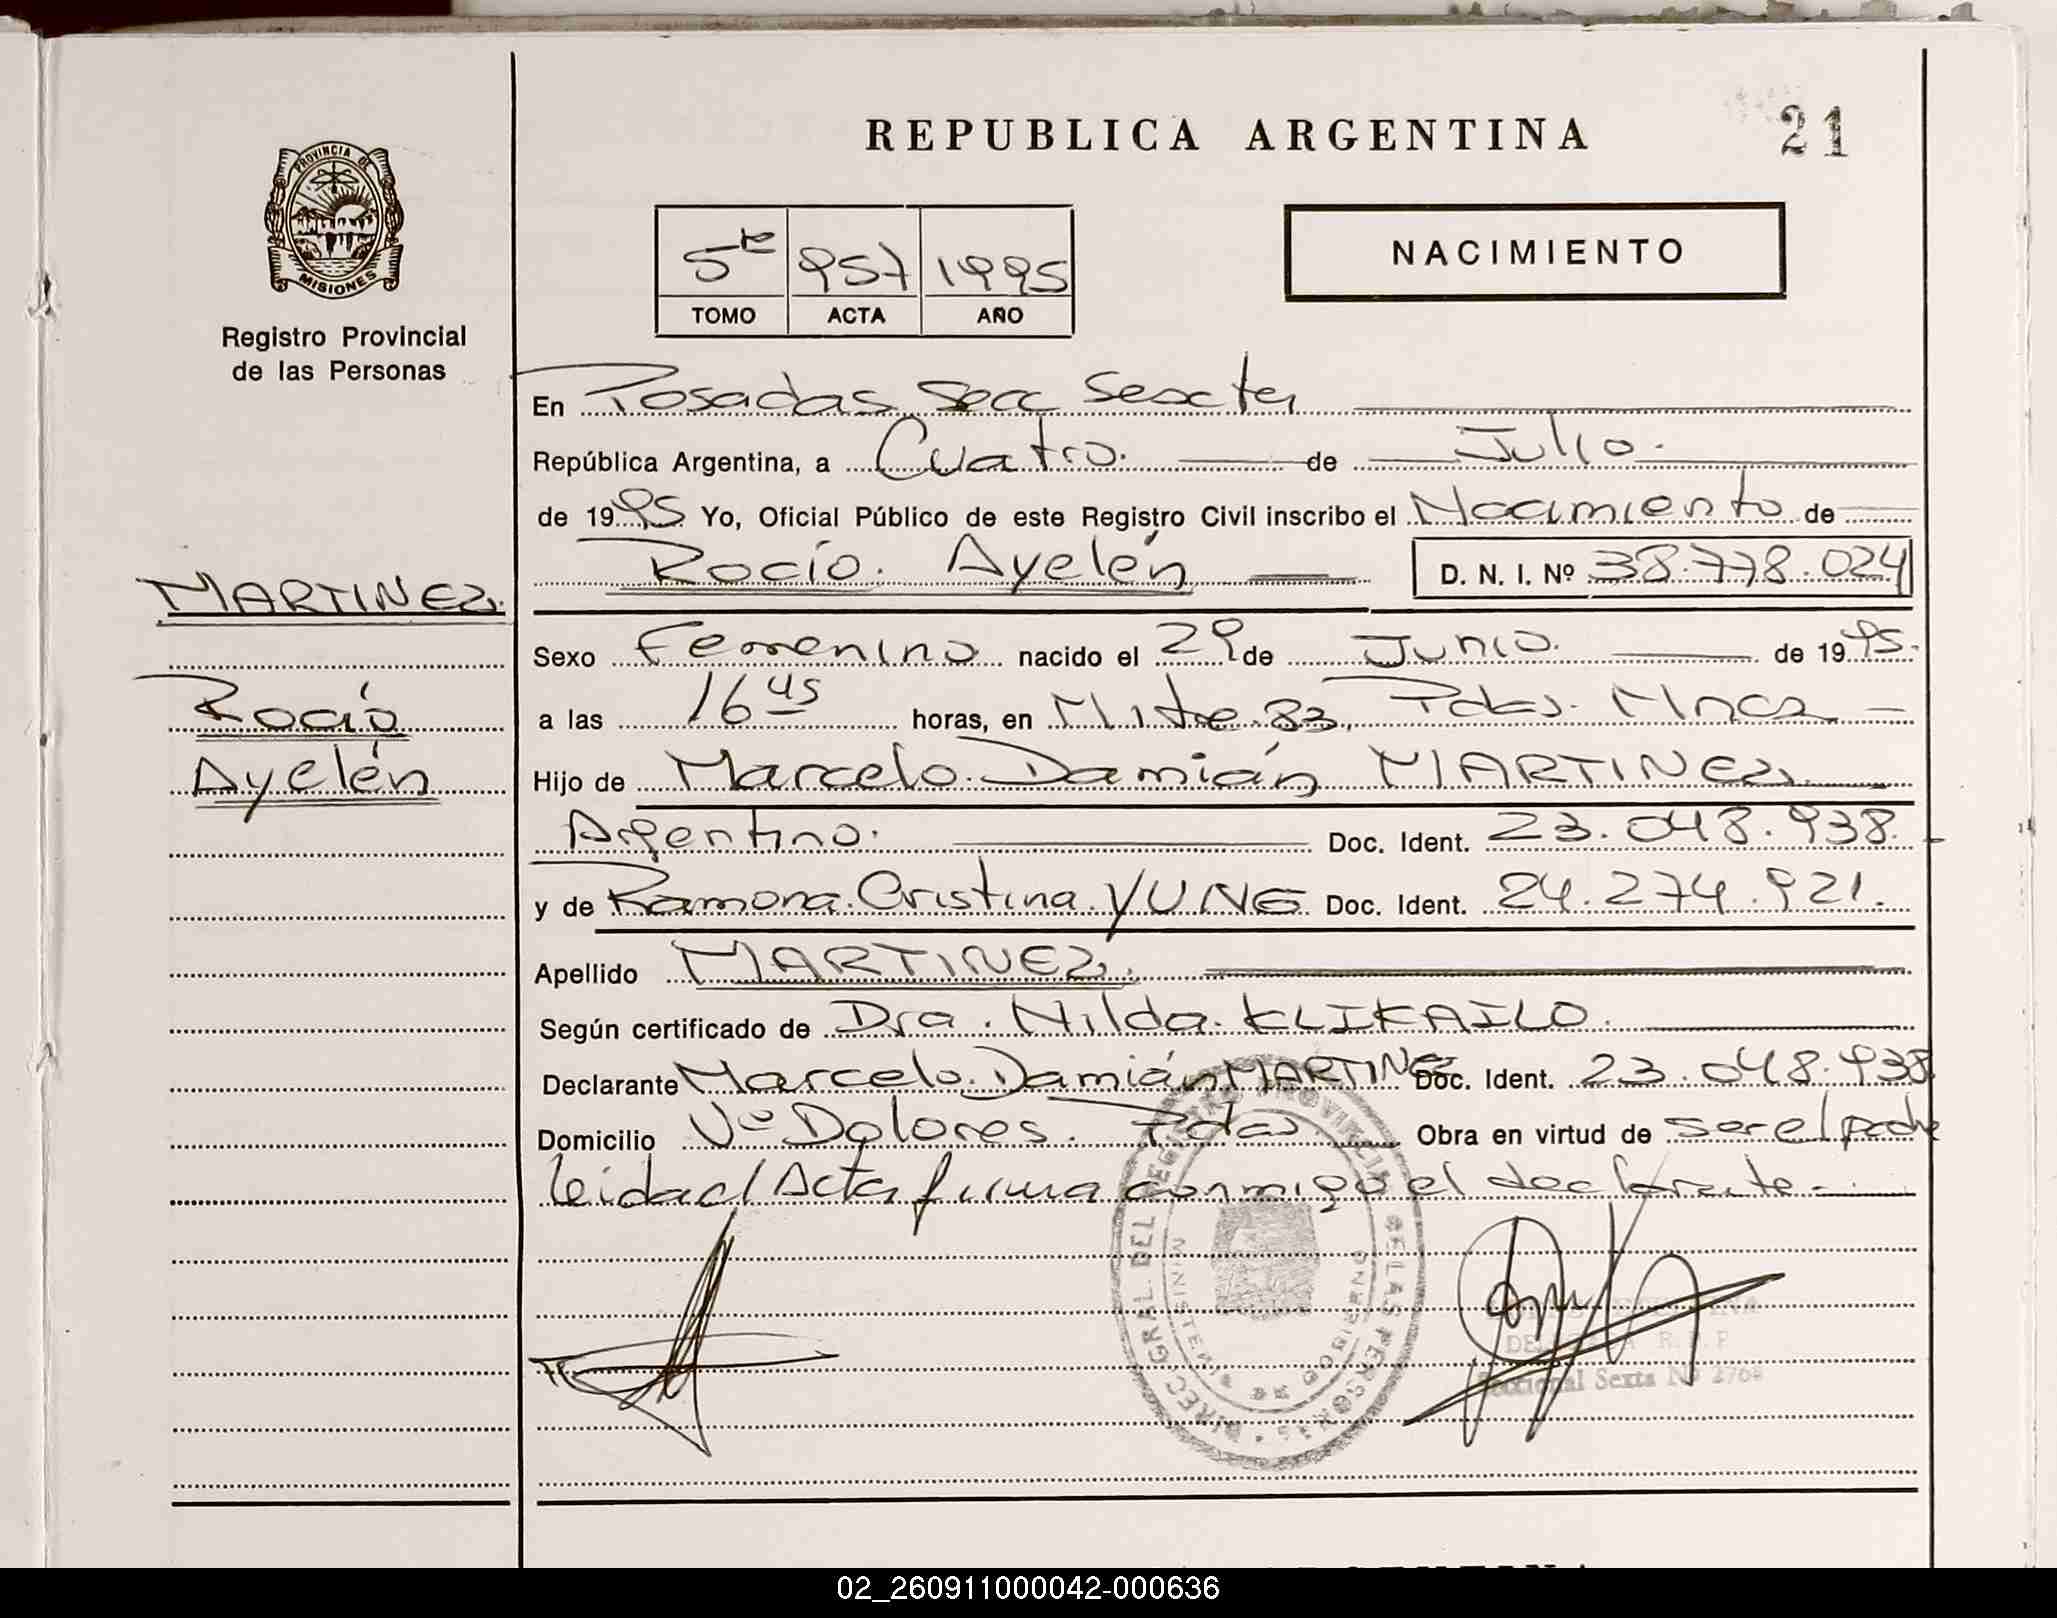 REPUBLICA ARGENTINA
21
PROVINCIA DE
MISIONES
Registro Provincial
de las Personas
5to 957 1995
TOMO ACTA AÑO
NACIMIENTO
En Posadas Secc Sexta
República Argentina, a Cuatro. de Julio.
de 1995 Yo, Oficial Público de este Registro Civil inscribo el Nacimiento de
Rocío. Ayelén D. N. I. Nº 38.778.024
MARTINEZ.
Rocío
Ayelén
Sexo Femenino nacido el 29 de Junio. de 1995.
a las 16 horas, en Mitre 83, Pdas. Mnes
Hijo de Marcelo. Damián MARTINEZ.
Argentino. Doc. Ident. 23.048.938.
y de Ramona. Cristina. YUNG Doc. Ident. 24.274.921.
Apellido MARTINEZ.
Según certificado de Dra. Nilda. KLIKAILO.
Declarante Marcelo. Damián MARTINEZ Doc. Ident. 23.048.938
Domicilio Va Dolores. Pdas Obra en virtud de ser el padre
leida el Acta firma conmigo el declarante.
DIREC. GRAL. DEL REGISTRO PROVINCIAL DE LAS PERSONAS
MINISTERIO DE GOBIERNO
R. P. P.
Seccional Sexta Nº 2764
02_260911000042-000636